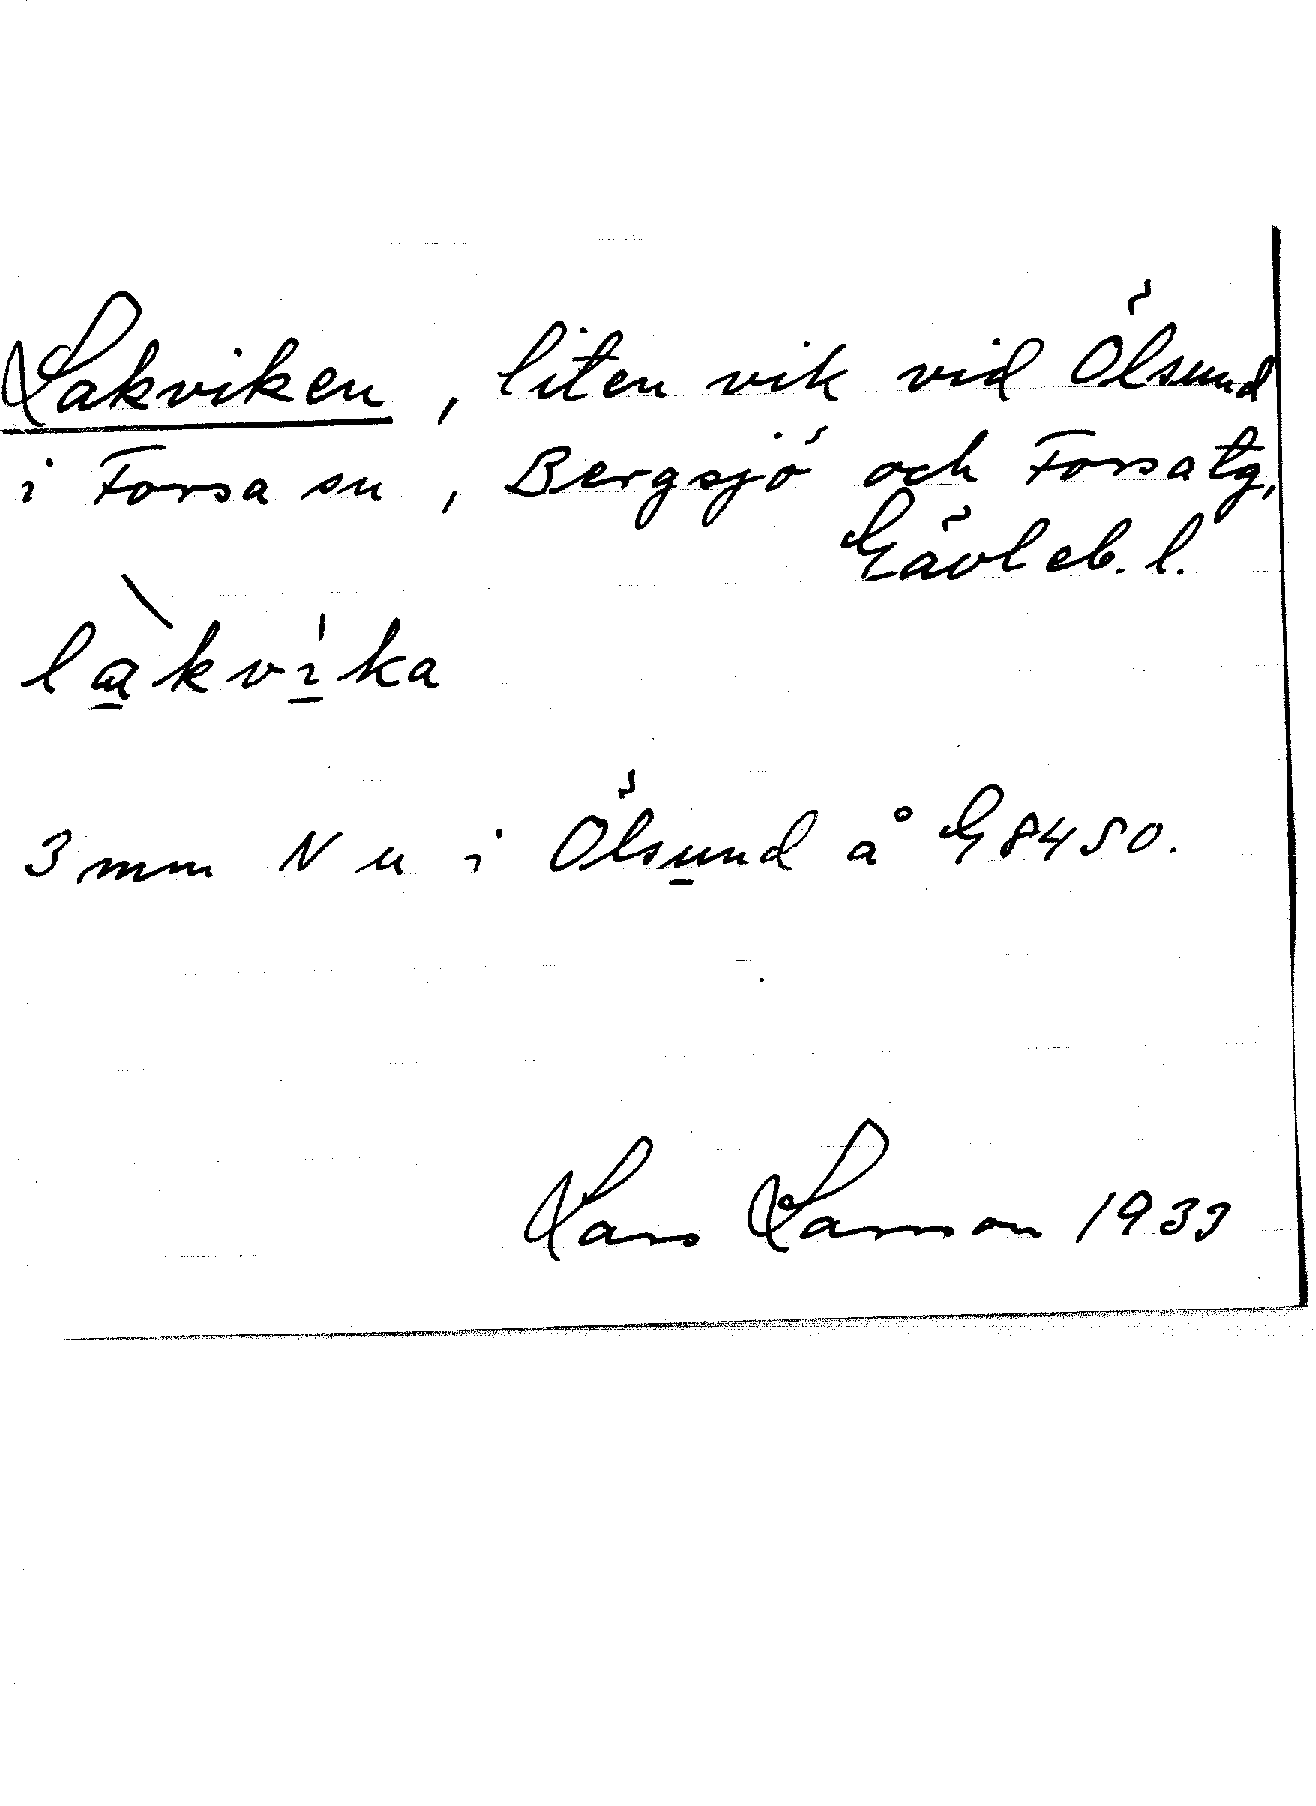 Lakviken, liten vik vid Ölsund
i Forsa sn, Bergsjö och Forsa tg,
Gävleb. l.
là̱kví̱ka
3 mm N u i Ölsu̱nd å G8450.
Lars Larsson 1933